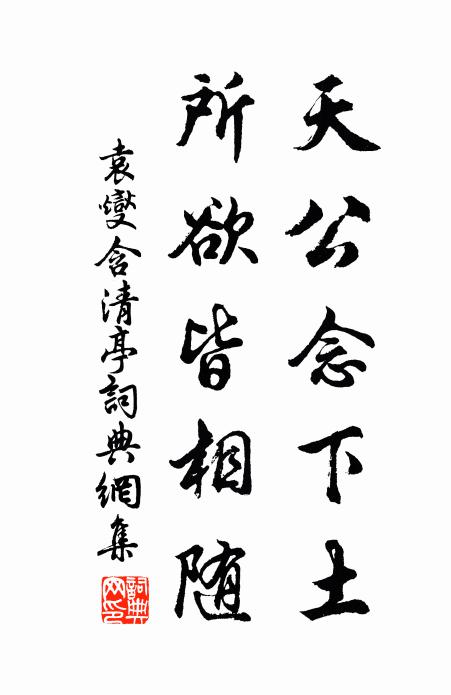 天公念下土
所欲皆相随
袁燮含清亭詞典網集
詞典网印